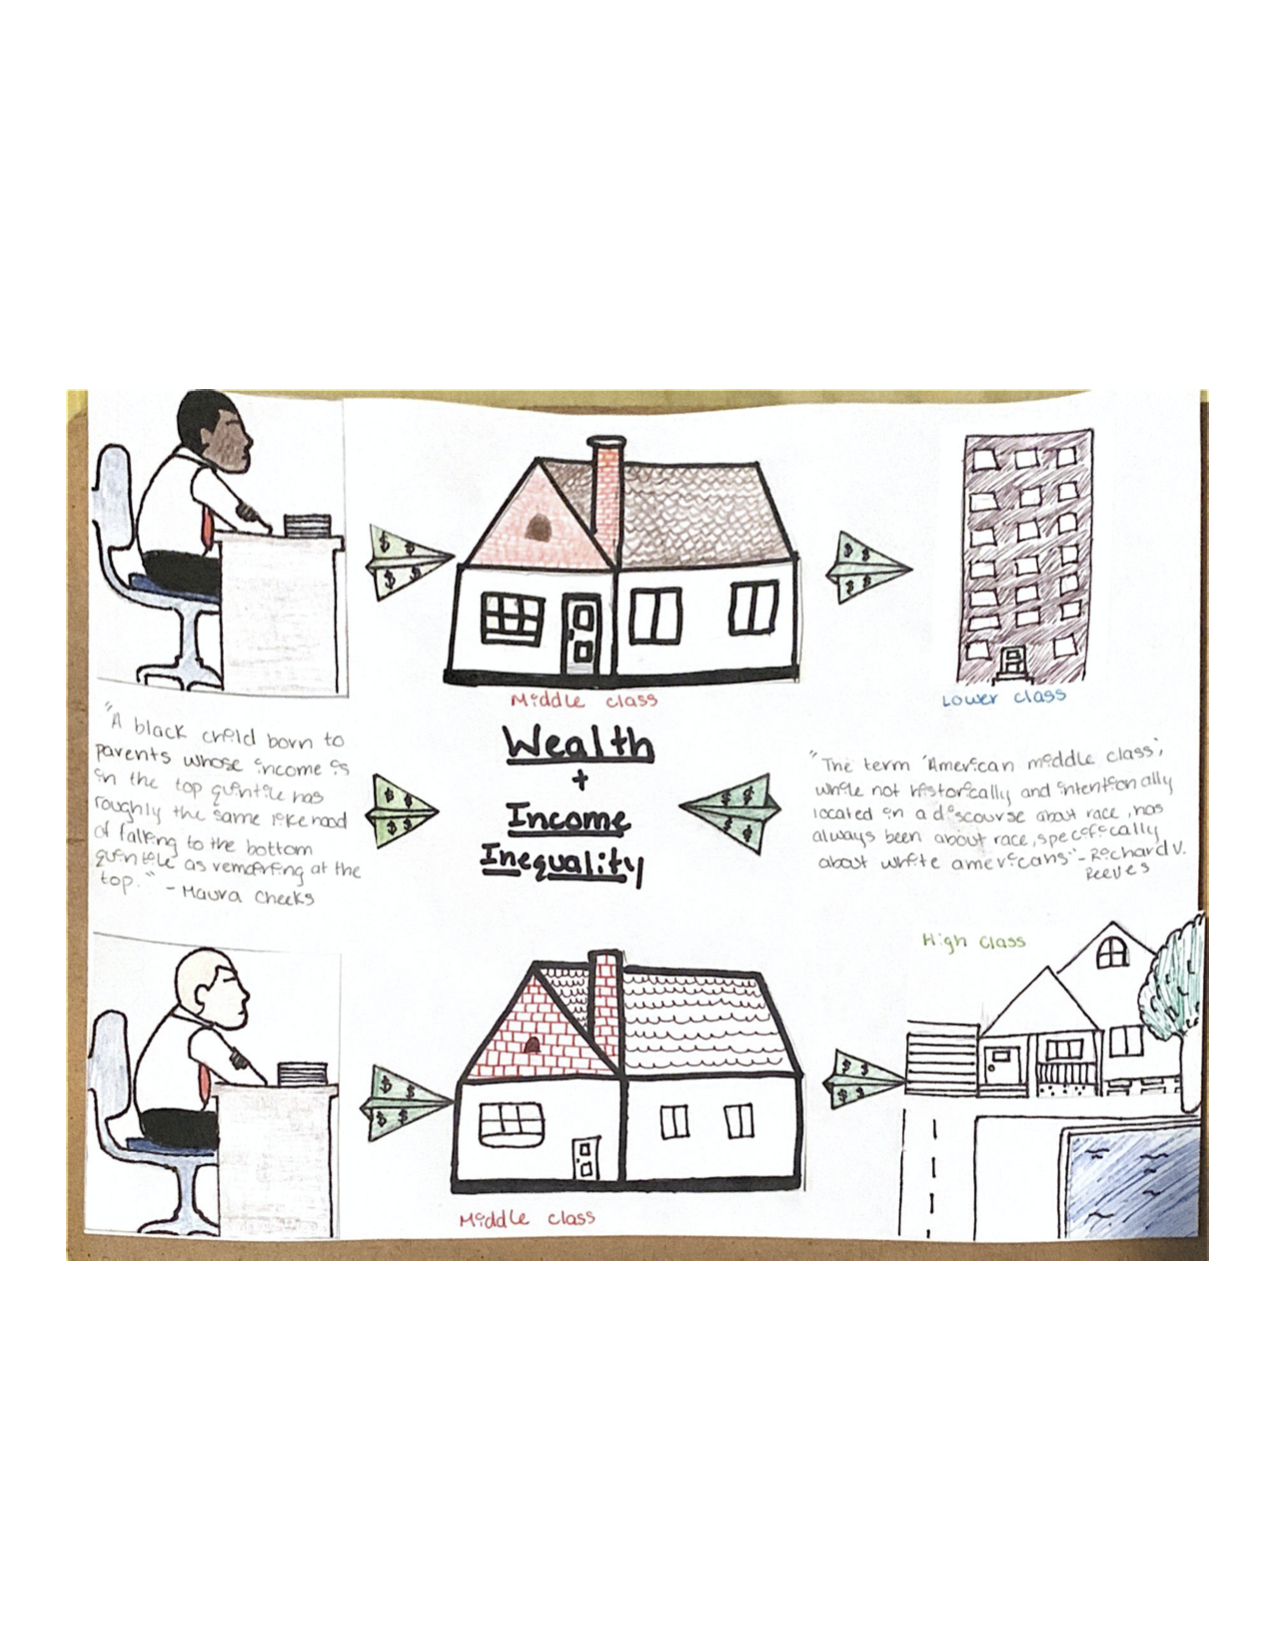 Middle class
Lower class
Wealth
+
Income
Inequality
"A black child born to
parents whose income is
in the top quintile has
roughly the same likehood
of falling to the bottom
quintile as remaining at the
top." - Maura Cheeks
"The term 'American middle class',
while not historically and intentionally
located in a discourse about race, has
always been about race, specifically
about white americans" - Richard V.
Reeves
High Class
Middle class
$ $ $ $
$ $ $ $
$ $ $ $
$ $ $ $
$ $ $ $
$ $ $ $